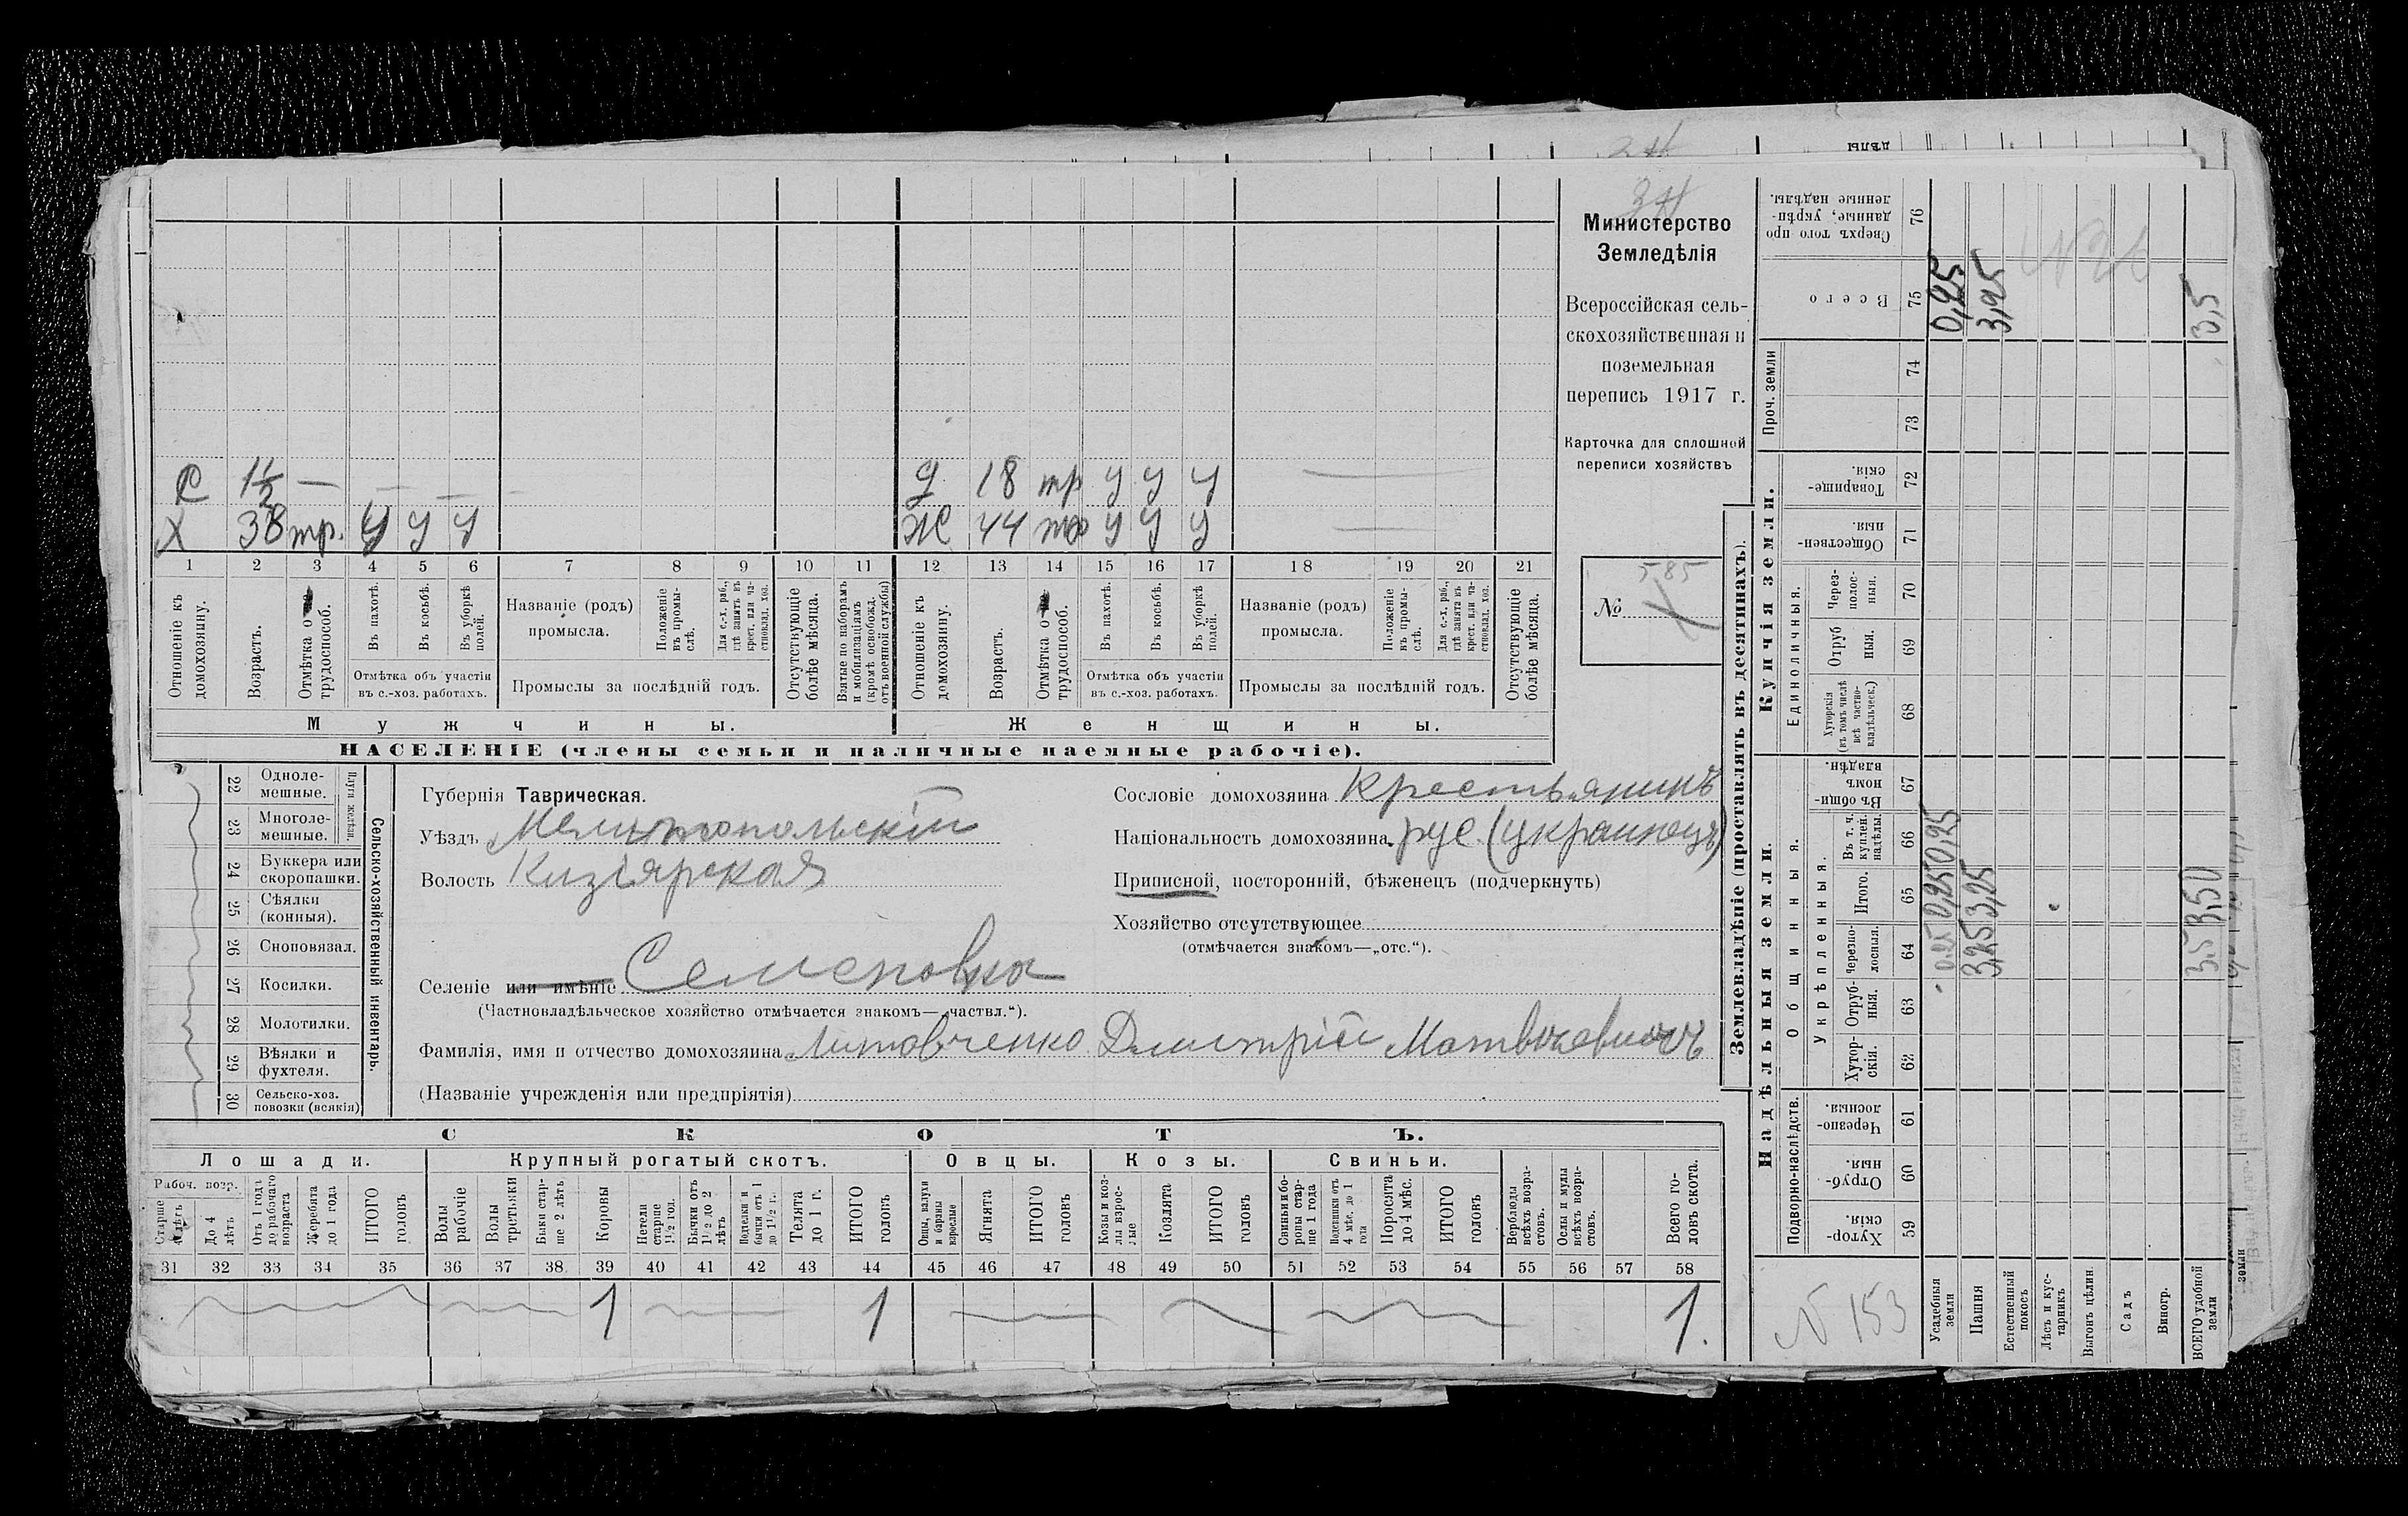 Министерство
Земледѣлія
Всероссійская сель-
скохозяйственная и
поземельная
перепись 1917 г.
Карточка для сплошной
переписи хозяйствъ
№ 585
С 1½ — — — —
Х 38 тр. У У У
Д 18 тр У У У —
Ж 44 тр У У У —
1 2 3 4 5 6 7 8 9 10 11 12 13 14 15 16 17 18 19 20 21
Отношеніе къ домохозяину.
Возрастъ.
Отмѣтка о трудоспособ.
Въ пахотѣ.
Въ косьбѣ.
Въ уборкѣ полей.
Отмѣтка объ участіи
въ с.-хоз. работахъ.
Названіе (родъ)
промысла.
Положеніе въ промы-слѣ.
Для с.-х. раб., гдѣ занятъ въ крест. или ча-стновлад. хоз.
Промыслы за послѣдній годъ.
Отсутствующіе болѣе мѣсяца.
Взятые по наборамъ и мобилизаціямъ (кромѣ освобожд. отъ военной службы)
Отношеніе къ домохозяину.
Возрастъ.
Отмѣтка о трудоспособ.
Въ пахотѣ.
Въ косьбѣ.
Въ уборкѣ полей.
Отмѣтка объ участіи
въ с.-хоз. работахъ.
Названіе (родъ)
промысла.
Положеніе въ промы-слѣ.
Для с.-х. раб., гдѣ занята въ крест. или ча-стновлад. хоз.
Промыслы за послѣдній годъ.
Отсутствующіе болѣе мѣсяца.
Мужчины. Женщины.
НАСЕЛЕНІЕ (члены семьи и наличные наемные рабочіе).
22 Одноле-мешные.
23 Многоле-мешные.
Плуги желѣзн.
24 Буккера или скоропашки.
25 Сѣялки (конныя).
26 Сноповязал.
27 Косилки.
28 Молотилки.
29 Вѣялки и фухтеля.
30 Сельско-хоз. повозки (всякія)
Сельско-хозяйственный инвентарь.
Губернія Таврическая.
Уѣздъ Мелитопольскій
Волость Кизіярская
Селеніе или имѣніе Семеновка
(Частновладѣльческое хозяйство отмѣчается знакомъ—„частвл.“).
Фамилія, имя и отчество домохозяина Литовченко Дмитрій Матвѣевичъ
(Названіе учрежденія или предпріятія)
Сословіе домохозяина крестьянинъ
Національность домохозяина рус. (украинецъ)
Приписной, посторонній, бѣженецъ (подчеркнуть)
Хозяйство отсутствующее
(отмѣчается знакомъ—„отс.“).
СКОТЪ.
Лошади. Крупный рогатый скотъ. Овцы. Козы. Свиньи.
Рабоч. возр.
Старше 4 лѣтъ
До 4 лѣтъ
Отъ 1 года до рабочаго возраста
Жеребята до 1 года
ИТОГО головъ
Волы рабочіе
Волы третьяки
Быки стар-ше 2 лѣтъ
Коровы
Нетели старше 1½ год.
Бычки отъ 1½ до 2 лѣтъ
Подтелки и бычки отъ 1 до 1½ г.
Телята до 1 г.
ИТОГО головъ
Овцы, валухи и бараны взрослые
Ягнята
ИТОГО головъ
Козы и коз-лы взрос-лые
Козлята
ИТОГО головъ
Свиньи и бо-ровы стар-ше 1 года
Подсвинки отъ 4 мѣс. до 1 года
Поросята до 4 мѣс.
ИТОГО головъ
Верблюды всѣхъ возра-стовъ.
Ослы и мулы всѣхъ возра-стовъ.
Всего го-ловъ скота.
31 32 33 34 35 36 37 38 39 40 41 42 43 44 45 46 47 48 49 50 51 52 53 54 55 56 57 58
1 1 1.
Землевладѣніе (проставлять въ десятинахъ).
Надѣльныя земли. Купчія земли. Проч. земли
Подворно-наслѣдств.
Общинныя.
Укрѣпленныя.
Единоличныя.
Хутор-скія. 59
Отруб-ныя. 60
Черезпо-лосныя. 61
Хутор-скія. 62
Отруб-ныя. 63
Черезпо-лосныя. 64
Итого. 65
Въ т. ч. куплен. надѣлы. 66
Въ общин-номъ владѣн. 67
Хуторскія (въ томъ числѣ всѣ частно-владѣльческ.) 68
Отруб ныя. 69
Через-полос-ныя. 70
Обществен-ныя. 71
Товарище-скія. 72
73
74
Всего 75
Сверхъ того про данные, укрѣп-ленные надѣлы. 76
Усадебныя земли 0.25 0,25 0,25 0,25
Пашня 3,25 3,25 3,25
Естественный покосъ
Лѣсъ и кус-тарникъ
Выгонъ цѣлин.
Садъ
Виногр.
ВСЕГО удобной земли 3.5 3,50 3,5
N 153
дѣлы
земли